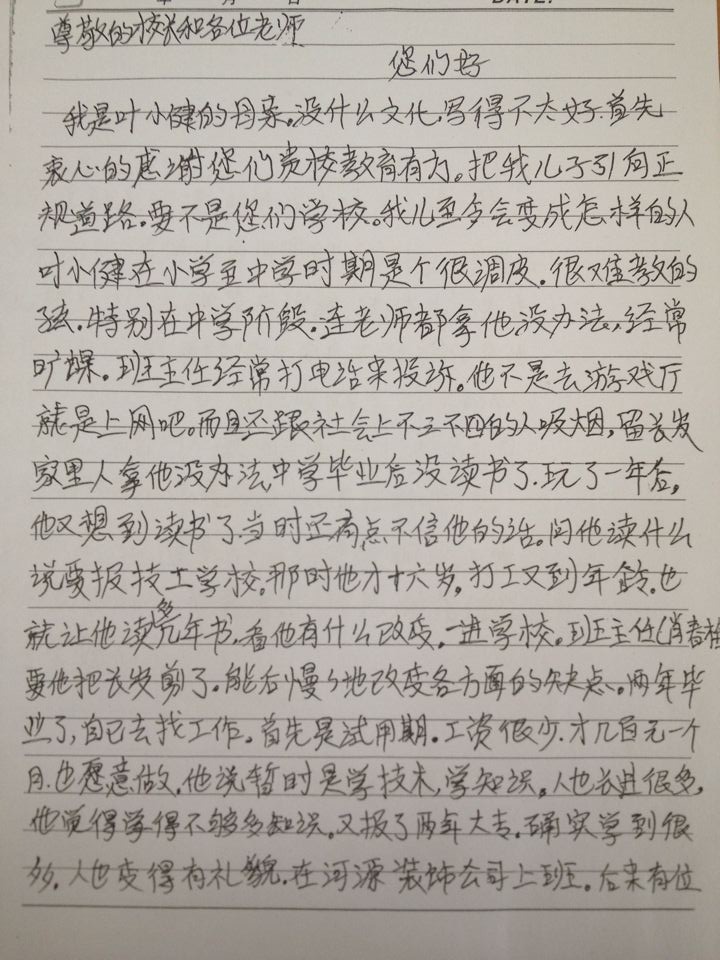 DATE:
尊敬的校长和各位老师
您们好
我是叶小健的母亲。没什么文化,写得不太好.首先
衷心的感谢您们贵校教育有方。把我儿子引向正
规道路。要不是您们学校。我儿至今会变成怎样的人
叶小健在小学至中学时期是个很调皮.很难教的
孩.特别在中学阶段.连老师都拿他没办法,经常
旷课。班主任经常打电话来投诉。他不是去游戏厅
就是上网吧。而且还跟社会上不三不四的人吸烟,留长发
家里人拿他没办法,中学毕业后没读书了.玩了一年后,
他又想到读书了.当时还有点不信他的话。问他读什么
说要报技工学校,那时他才十六岁,打工又到年龄.也
就让他读多几年书.看他有什么改变,一进学校。班主任(肖春桂
要他把长发剪了。能后慢々地改变各方面的缺点。两年毕
业了,自己去找工作。首先是试用期。工资很少.才几百元一个
月.也愿意做,他说暂时是学技术,学知识。人也长进很多,
他觉得学得不够多知识。又报了两年大专。确实学到很
多.人也变得有礼貌.在河源装饰公司上班。后来有位